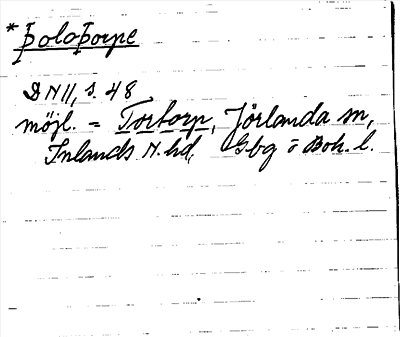 * þoloþorpe
DN II, s. 48
möjl. = Tortorp, Jörlanda sn,
Inlands N. hd, Gbg o Boh. l.